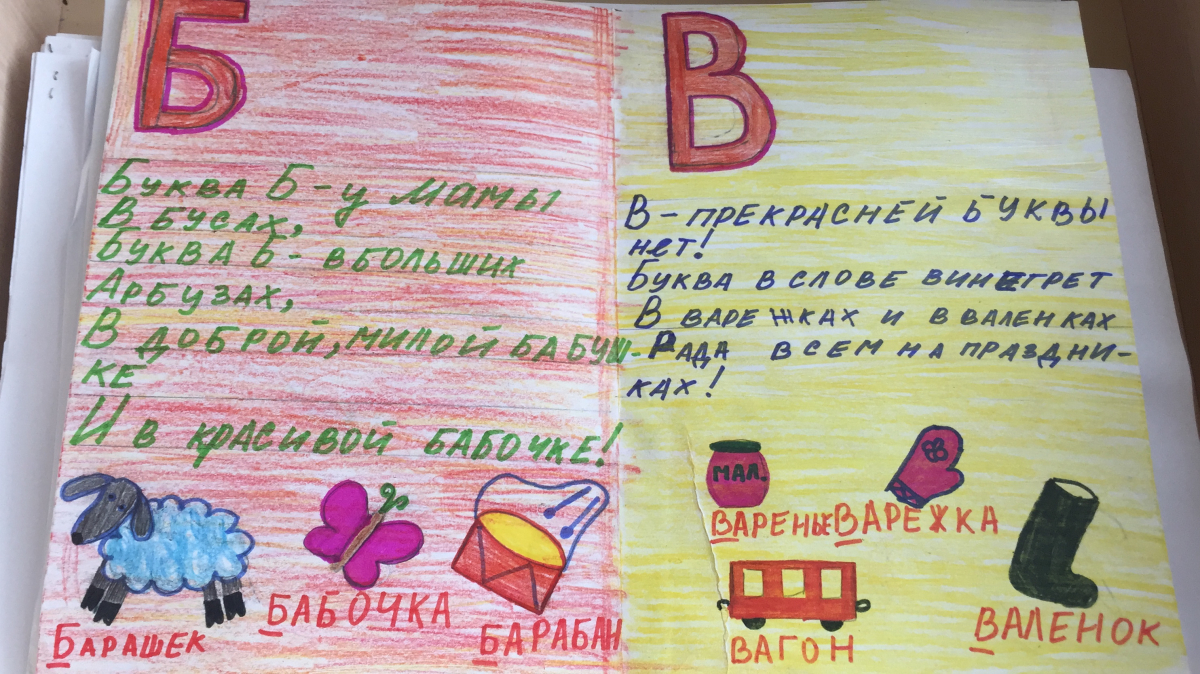 Б
Буква Б-у мамы
В бусах,
Буква Б- в больших
Арбузах,
В доброй, милой бабуш-
ке
И в красивой бабочке!
Барашек
БАБОЧКА
БАРАБАН
В
В - ПРЕКРАСНЕЙ БУКВЫ
нет!
Буква в слове винегрет
В варежках и в валенках
Рада всем на праздни-
ках!
МАЛ.
ВАРЕНЬЕ
ВАРЕЖКА
ВАГОН
ВАЛЕНОК